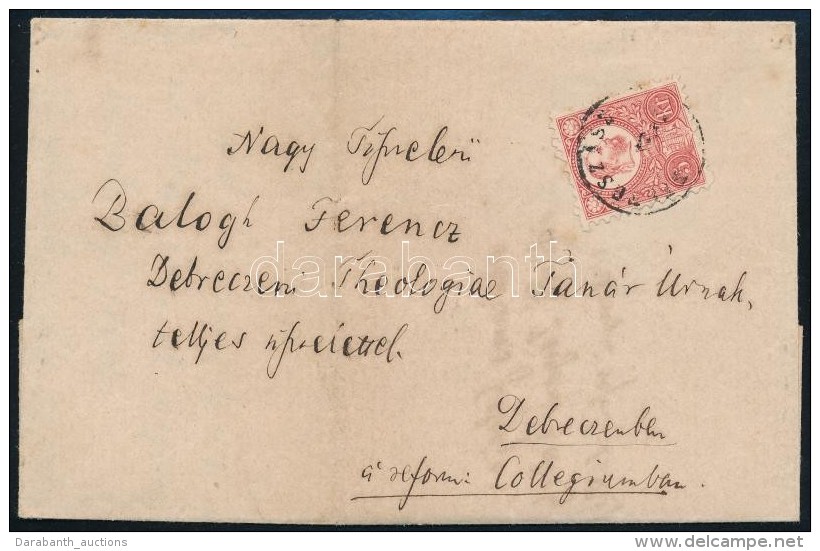 Nagy Tiszteletü
Balogh Ferencz
Debreczeni Theologiae Tanár Úrnak,
teljes tisztelettel.
Debreczenben
a reform: Collegiumban.
darabanth
Darabanth_auctions
www.delcampe.net